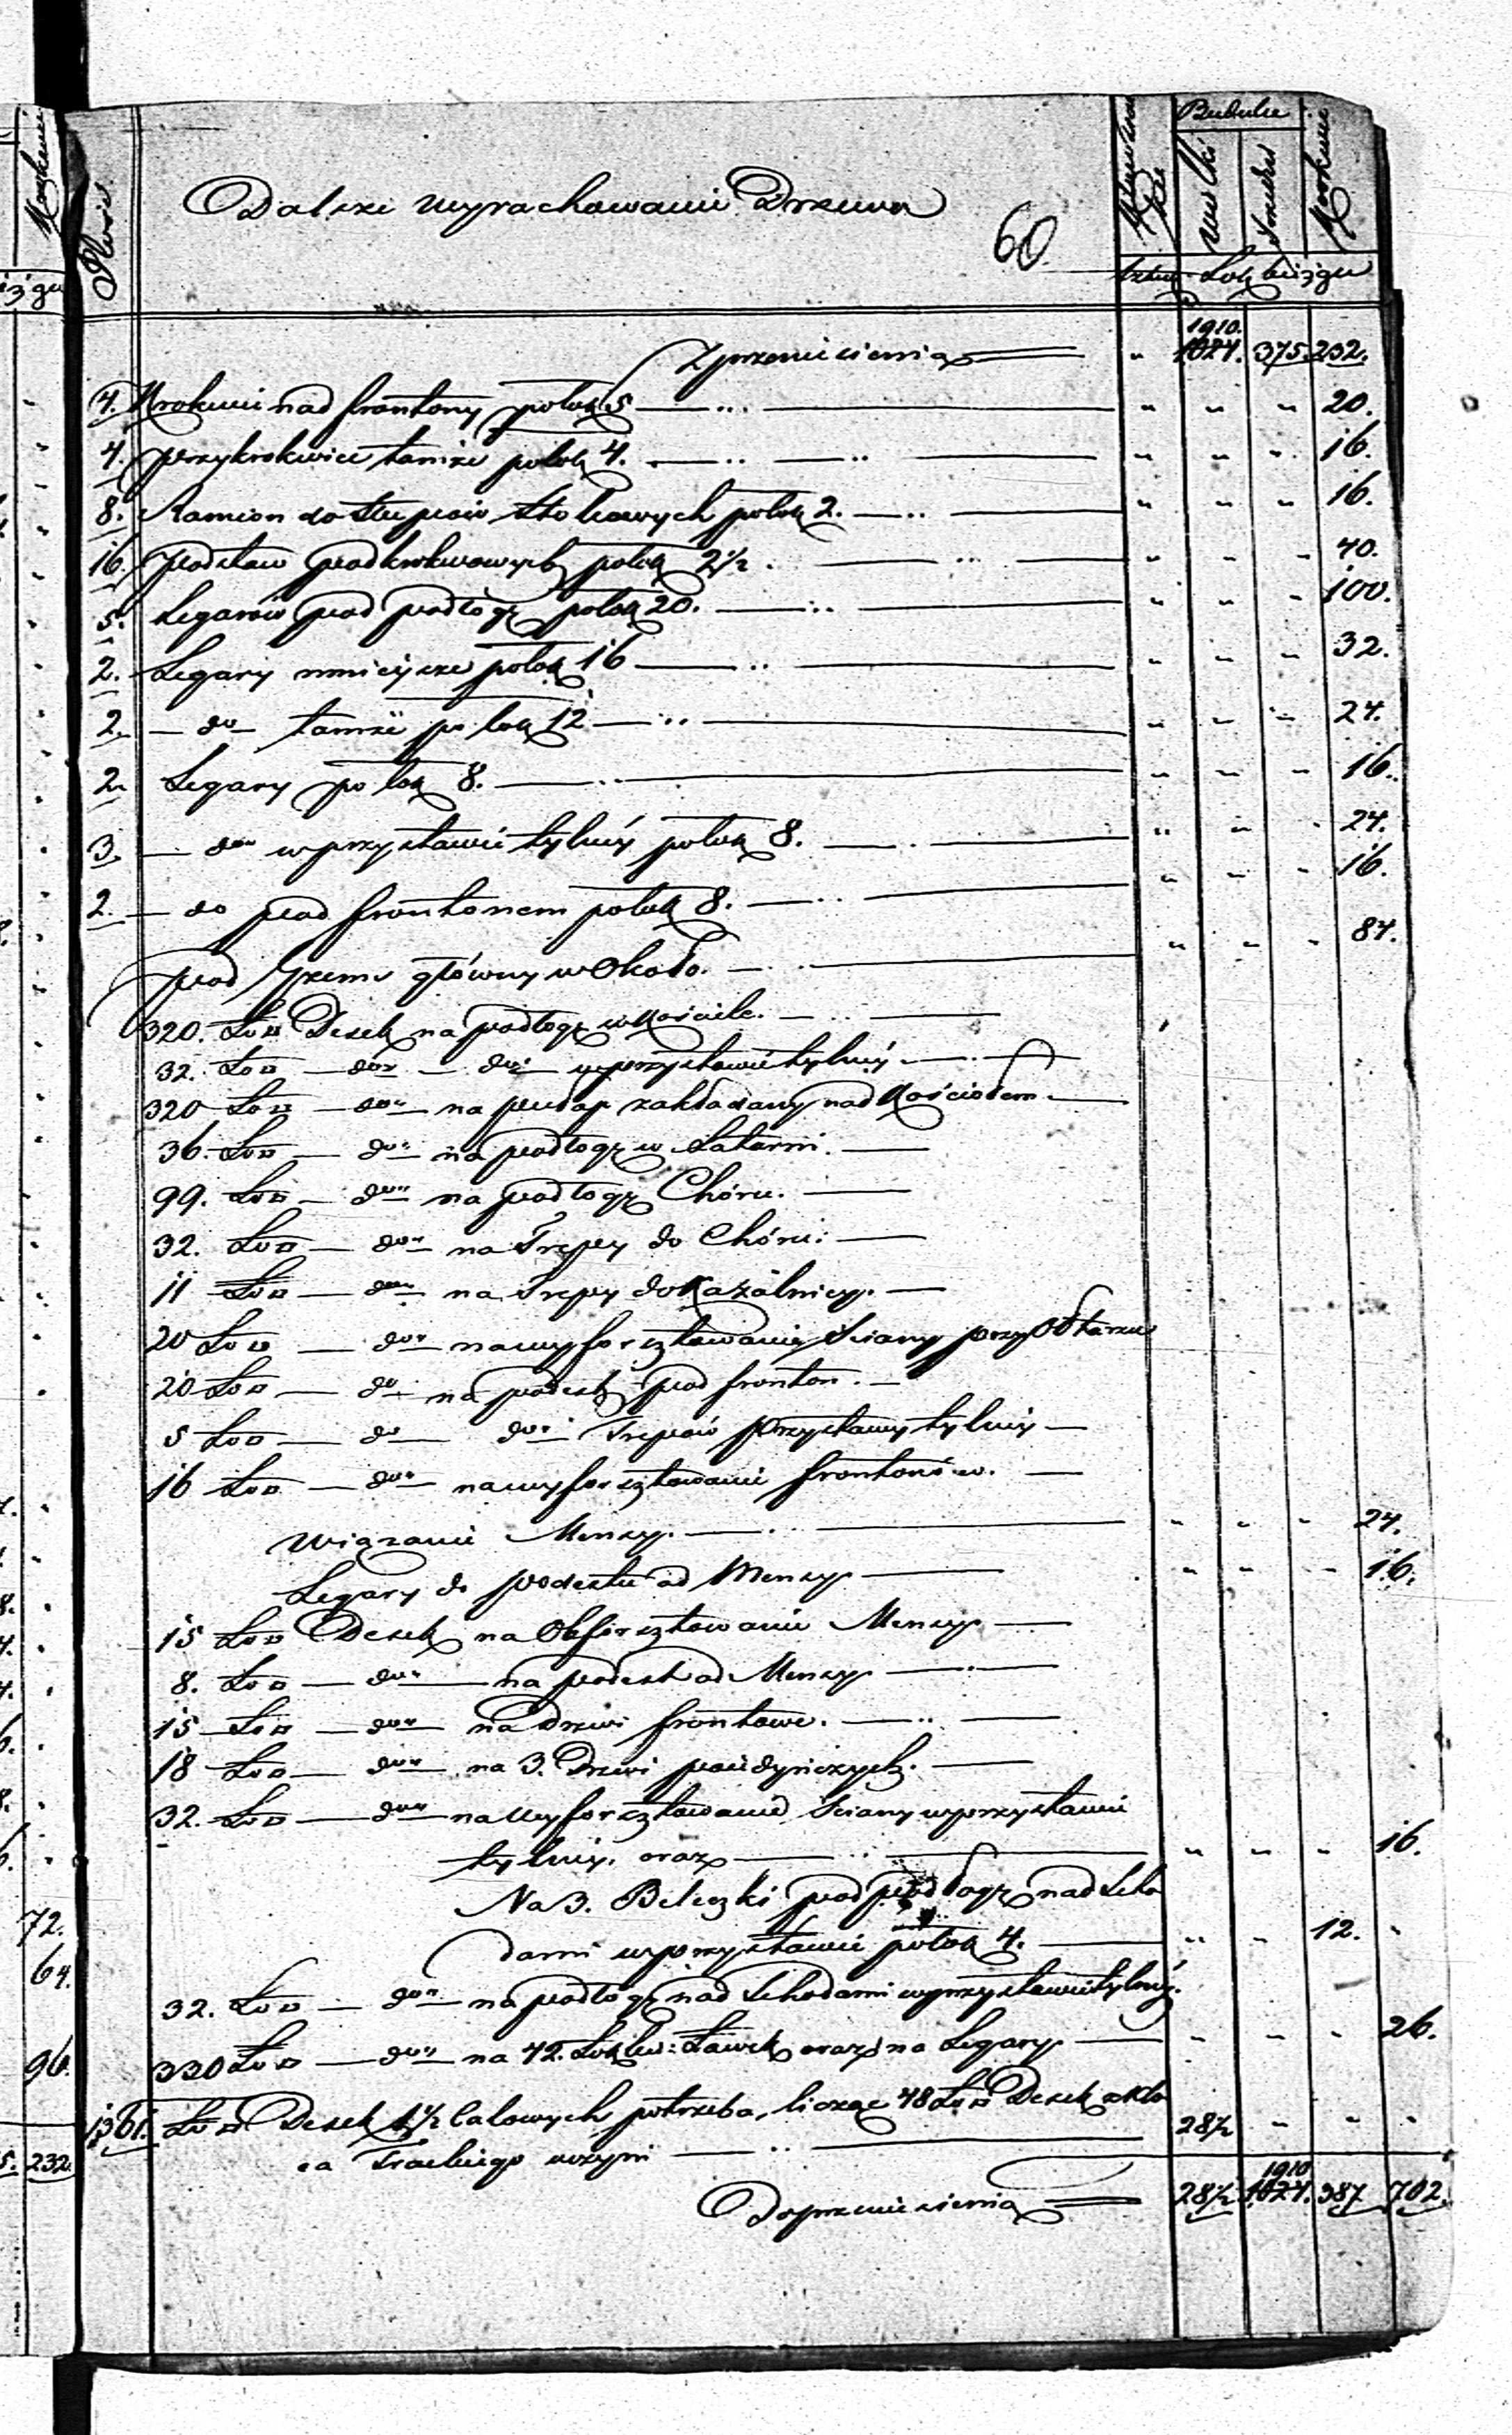 Budulcu
Ilość
Dalsze wyrachowanie Drzewa
60
wielki
średni
Krokwi
sztuk Łok bieżgu
1910.
Z przeniesienia " 1024. 375. 232.
4. Krokwi nad frontony po łok 5 " " " 20.
4. przykrokwice tamże po łok 4. " " " 16.
8. Ramion do słupców stolcowych po łok 2. " " " 16.
16. Podstaw podkrokwowych po łok 2½. " " " 40.
5. Legarów pod podłogę po łok 20. " " " 100.
2. Legary mniejsze po łok 16 " " " 32.
2. — do — tamże po łok 12 " " " 24.
2. Legary po łok 8. " " " 16.
3. — do w przystawie tylnéj po łok 8. " " " 24.
2. — do pod frontonem po łok 8. " " " 16.
pod Gzems główny w Około. " " " 84.
320. Ło▫ Desek na podłogę w Kościele.
32. Ło▫ — do — do — w przystawie tylnéj
320 Ło▫ — do — na pułap zakładany nad Kościołem
36. Ło▫ — do — na podłogę w Latarni.
99. Ło▫ — do — na podłogę Chóru.
32. Ło▫ — do — na Trepy do Chóru:
11 Ło▫ — do — na Trepy do Kazalnicy.
20 Ło▫ — do — na wyforsztowanie Ściany przy Ołtarzu
20 Ło▫ — do — na podest pod fronton.
5 Ło▫ — do — do — Trepów Przystawy tylnéj
16 Ło▫ — do — na wyforsztowanie frontonów.
Wiązanie Mensy. " " " 24.
Legary do podestu od Mensy " " " 16.
15 Ło▫ Desek na Obforsztowanie Mensy
8. Ło▫ — do — na podest od Mensy
15 Ło▫ — do — na Drzwi frontowe.
18 Ło▫ — do — na 3. Drzwi pojedynczych.
32. Ło▫ — do — na wyforsztowanie Ściany w przystawie
tylnéj. oraz " " " 16.
Na 3. Beleczki pod podłogę nad Scho
dami w przystawie po łok 4. " " 12. "
32. Ło▫ — do — na podłogę nad Schodami w przystawie tylnéj.
330 Ło▫ — do — na 42. Łok Ławek oraz na Legary " " " 26.
1361. Ło▫ Desek 1½ calowych potrzeba, licząc 48 Ło▫ Desek z Klo
ca Trackiego uczyni 28½ " " "
1910
Do przeniesienia 28½ 1024. 387 702.
72.
64.
96.
232.